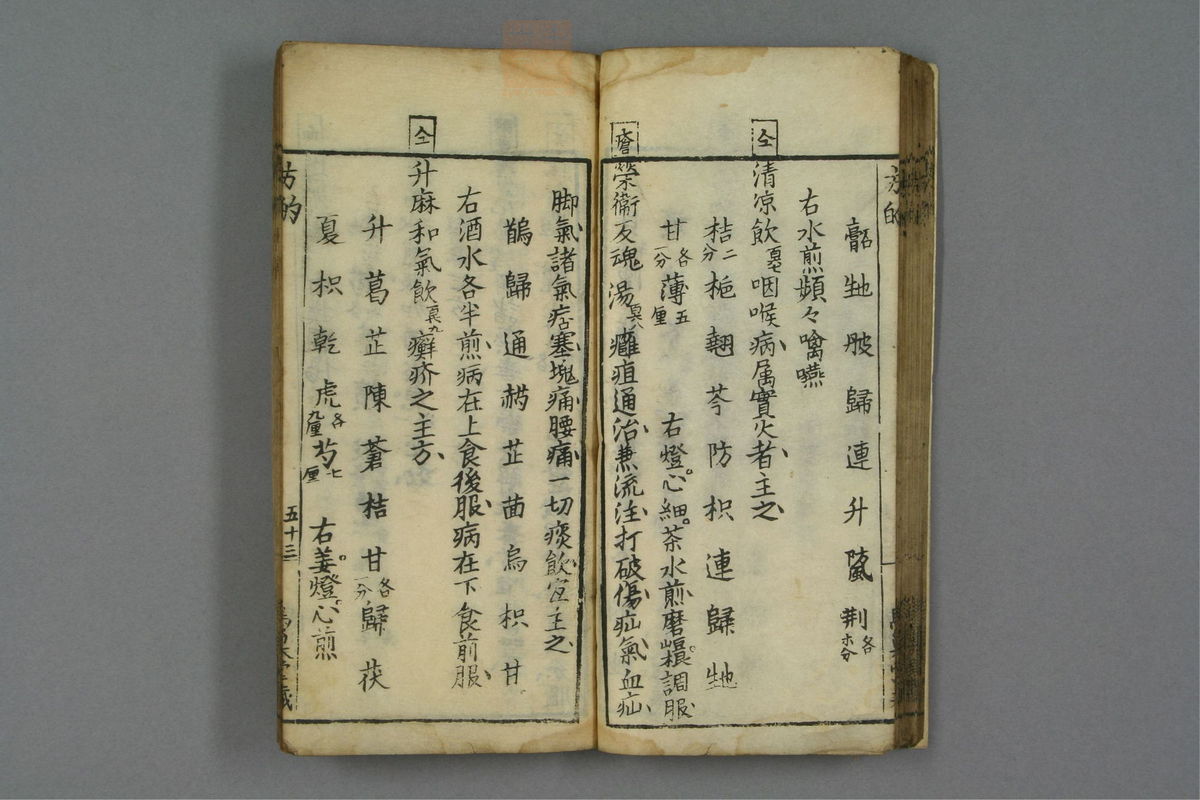 方的
地 皮 歸 連 升 荆 各
右水煎頻々噙嚥
仝
清凉飲 咽喉病属實火者主之
桔 二分 梔 翹 芩 防 枳 連 歸 地
甘 各一分 薄 五厘 右燈心細茶水煎磨 調服
瘡
榮衞反魂湯 癰疽通治兼流注打破傷疝氣血疝
脚氣諸氣痞塞塊痛腰痛一切痰飲宜主之
歸 通 芷 茴 烏 枳 甘
右酒水各半煎病在上食後服病在下食前服
仝
升麻和氣飲 癬疥之主方
升 葛 芷 陳 蒼 桔 甘 各一分 歸 茯
夏 枳 乾 虎 各九厘 芍 七厘 右姜燈心煎
方的
五十三